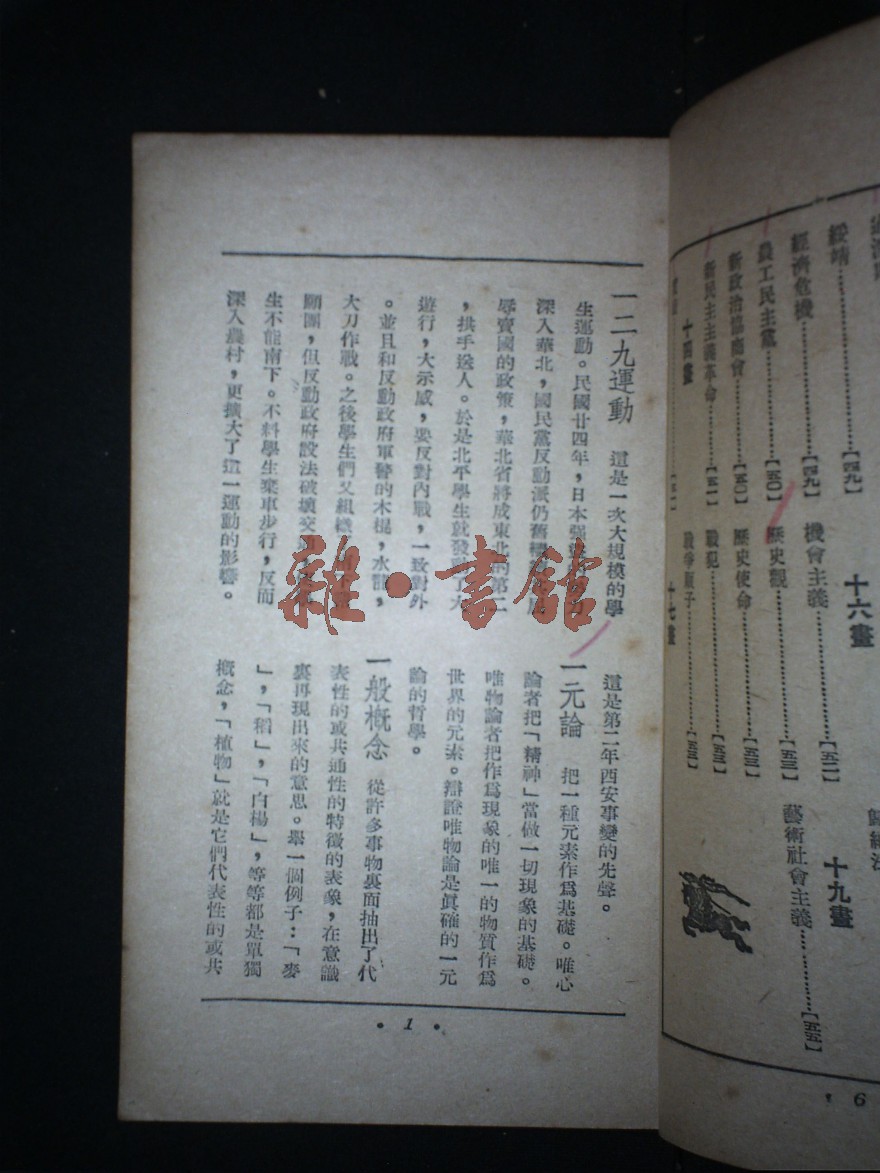 一二九運動　這是一次大規模的學
生運動。民國廿四年，日本強
深入華北，國民黨反動派仍舊
辱賣國的政策，華北省將成東北的第二
，拱手送人。於是北平學生就發動了大
遊行，大示威，要反對內戰，一致對外
。並且和反動政府軍警的木棍，水龍，
大刀作戰。之後學生們又組織
願團，但反動政府設法破壞交通
生不能南下。不料學生棄車步行，反而
深入農村，更擴大了這一運動的影響。
這是第二年西安事變的先聲。
一元論　把一種元素作爲基礎。唯心
論者把「精神」當做一切現象的基礎。
唯物論者把作爲現象的唯一的物質作爲
世界的元素。辯證唯物論是眞確的一元
論的哲學。
一般概念　從許多事物裏面抽出了代
表性的或共通性的特徵的表象，在意識
裏再現出來的意思。舉一個例子：「麥
」，「稻」，「白楊」，等等都是單獨
概念，「植物」就是它們代表性的或共
• 1 •
綏靖……【四九】
經濟危機……【四九】
農工民主黨……【五〇】
新政治協商會……【五〇】
新民主主義革命……【五一】
十四畫
機會主義……【五二】
十六畫
歷史觀……【五三】
歷史使命……【五三】
戰犯……【五三】
戰爭販子……【五三】
十七畫
歸納法
十九畫
藝術社會主義……【五五】
6
雜·書館